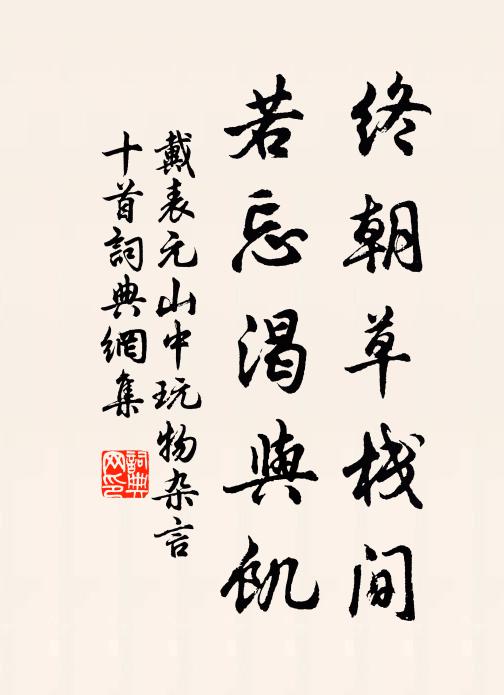 终朝草栈间
若忘渴與飢
戴表元山中玩物杂言
十首詞典網集
詞典网印